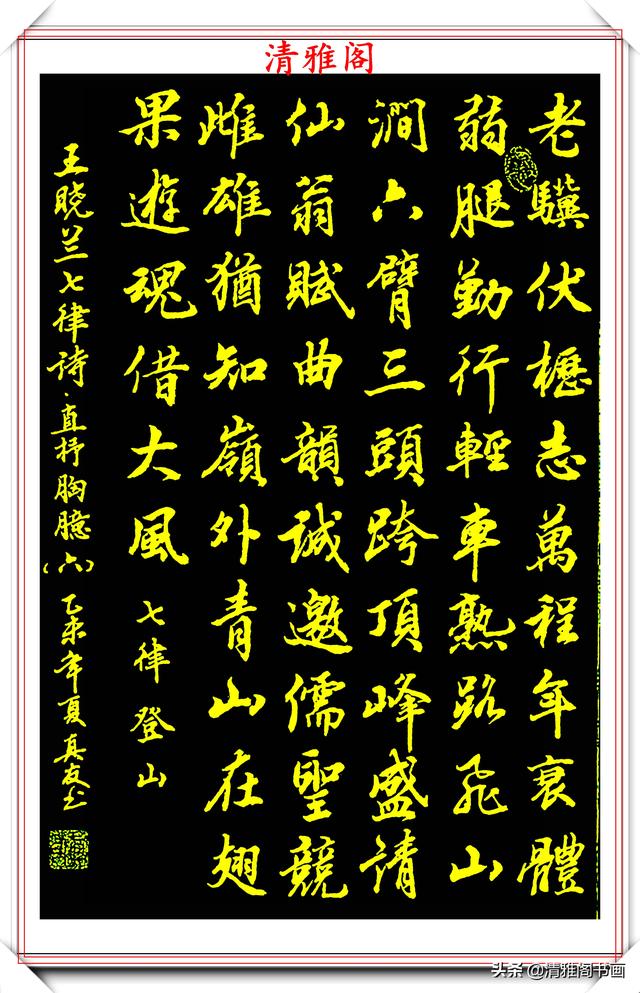 清雅阁
老驥伏櫪志萬程年衰體
弱腿勤行輕車熟路飛山
澗六臂三頭跨頂峰盛請
仙翁賦曲韻誠邀儒聖競
雌雄猶知嶺外青山在翅
果遊魂借大風 七律登山
王晓兰七律诗·直抒胸臆(六) 乙未年夏真友书
头条@清雅阁书画